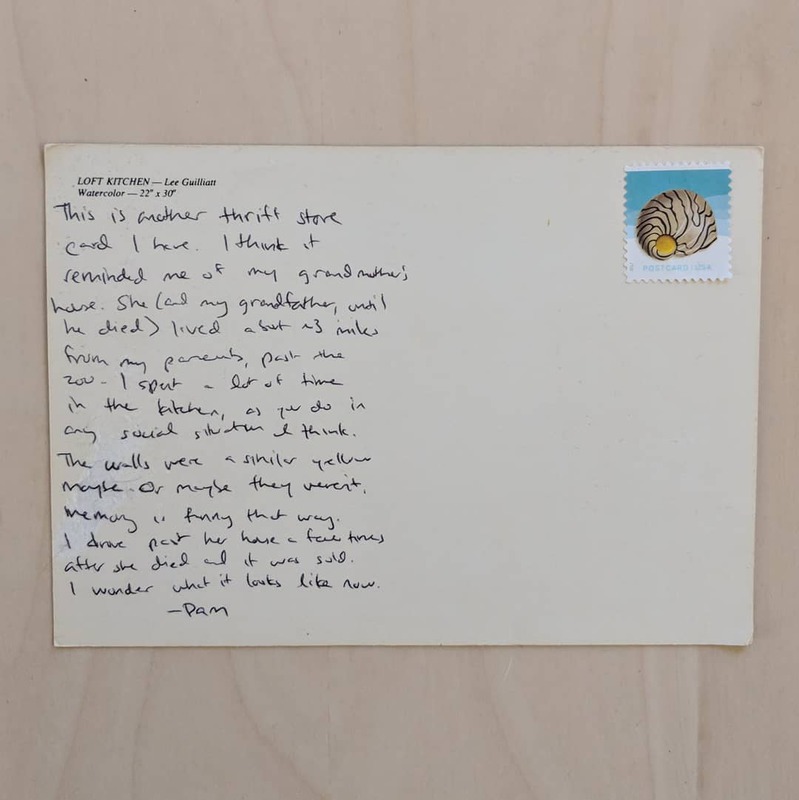 LOFT KITCHEN — Lee Guilliatt
Watercolor — 22" x 30"
This is another thrift store
card I have. I think it
reminded me of my grandmother's
house. She (and my grandfather, until
he died) lived about ~3 miles
from my parents, past the
zoo. I spent a lot of time
in the kitchen, as you do in
any social situation I think.
The walls were a similar yellow
maybe. Or maybe they weren't,
memory is funny that way.
I drove past her house a few times
after she died and it was sold.
I wonder what it looks like now.
—Pam
POSTCARD USA